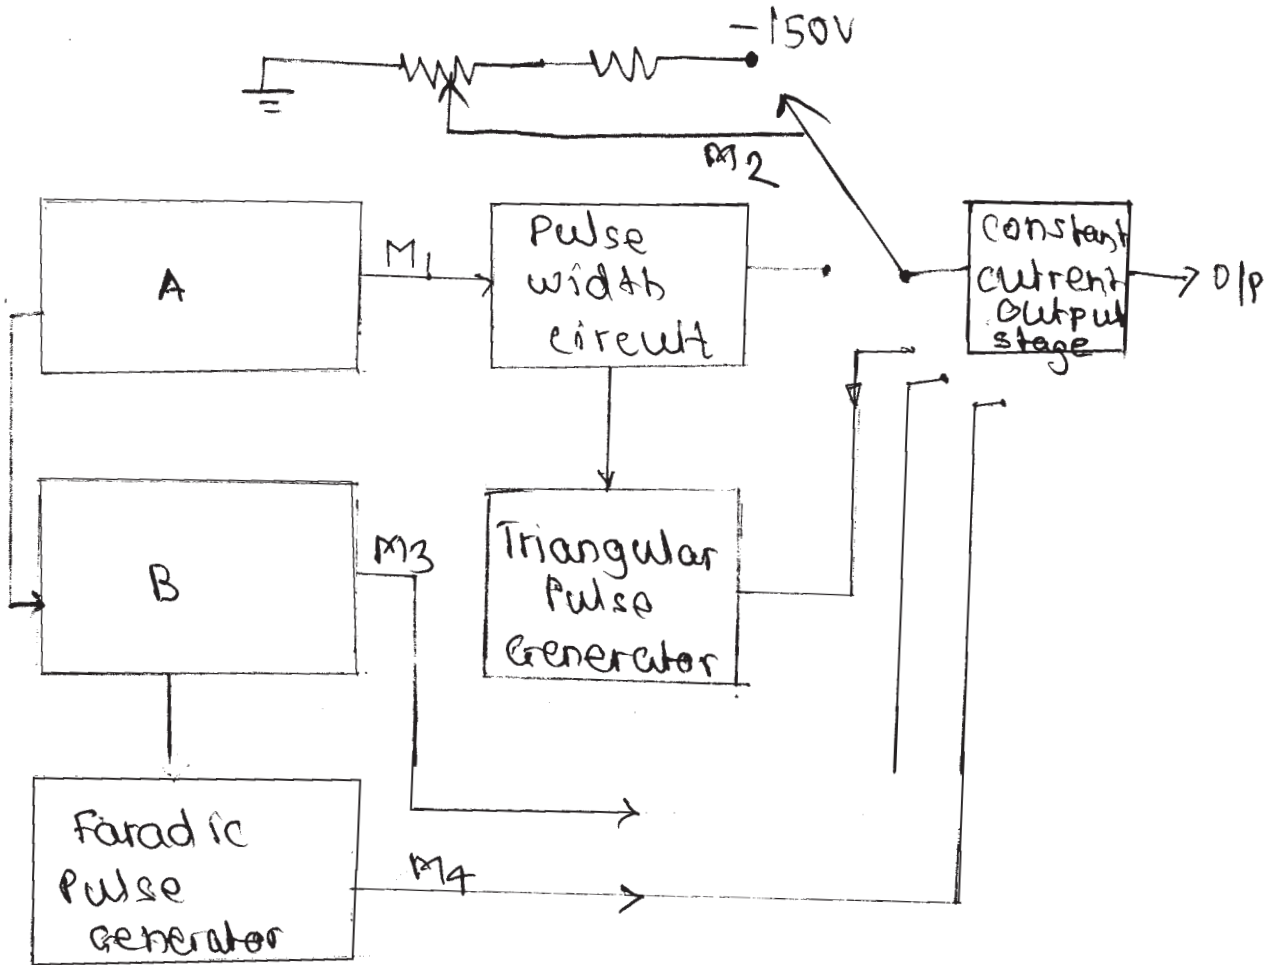 -150V
M2
A
M1
Pulse
width
circuit
constant
current
output
stage
O/P
B
M3
Triangular
Pulse
Generator
Faradic
Pulse
Generator
M4